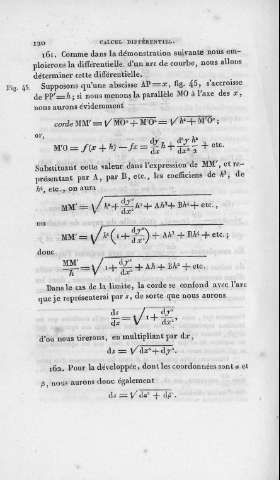 120 CALCUL DIFFÉRENTIEL.
161. Comme dans la démonstration suivante nous em-
ploierons la différentielle d'un arc de courbe, nous allons
déterminer cette différentielle.
Fig. 45. Supposons qu'une abscisse AP=x, fig. 45, s'accroisse
de PP'=h; si nous menons la parallèle MO à l'axe des x,
nous aurons évidemment
corde MM' = √(MO² + M'O²) = √(h² + M'O²);
or,
M'O = f(x + h) − fx = dy/dx h + d²y/dx² h²/2 + etc.
Substituant cette valeur dans l'expression de MM', et re-
présentant par A, par B, etc., les coefficiens de h³, de
h⁴, etc., on aura
MM' = √(h² + dy²/dx² h² + Ah³ + Bh⁴ + etc.,
ou
MM' = √(h²(1 + dy²/dx²) + Ah³ + Bh⁴ + etc.;
donc
MM'/h = √(1 + dy²/dx² + Ah + Bh² + etc.
Dans le cas de la limite, la corde se confond avec l'arc
que je représenterai par s, de sorte que nous aurons
ds/dx = √(1 + dy²/dx²),
d'où nous tirerons, en multipliant par dx,
ds = √(dx² + dy²).
162. Pour la développée, dont les coordonnées sont α et
β, nous aurons donc également
ds = √(dα² + dβ²).